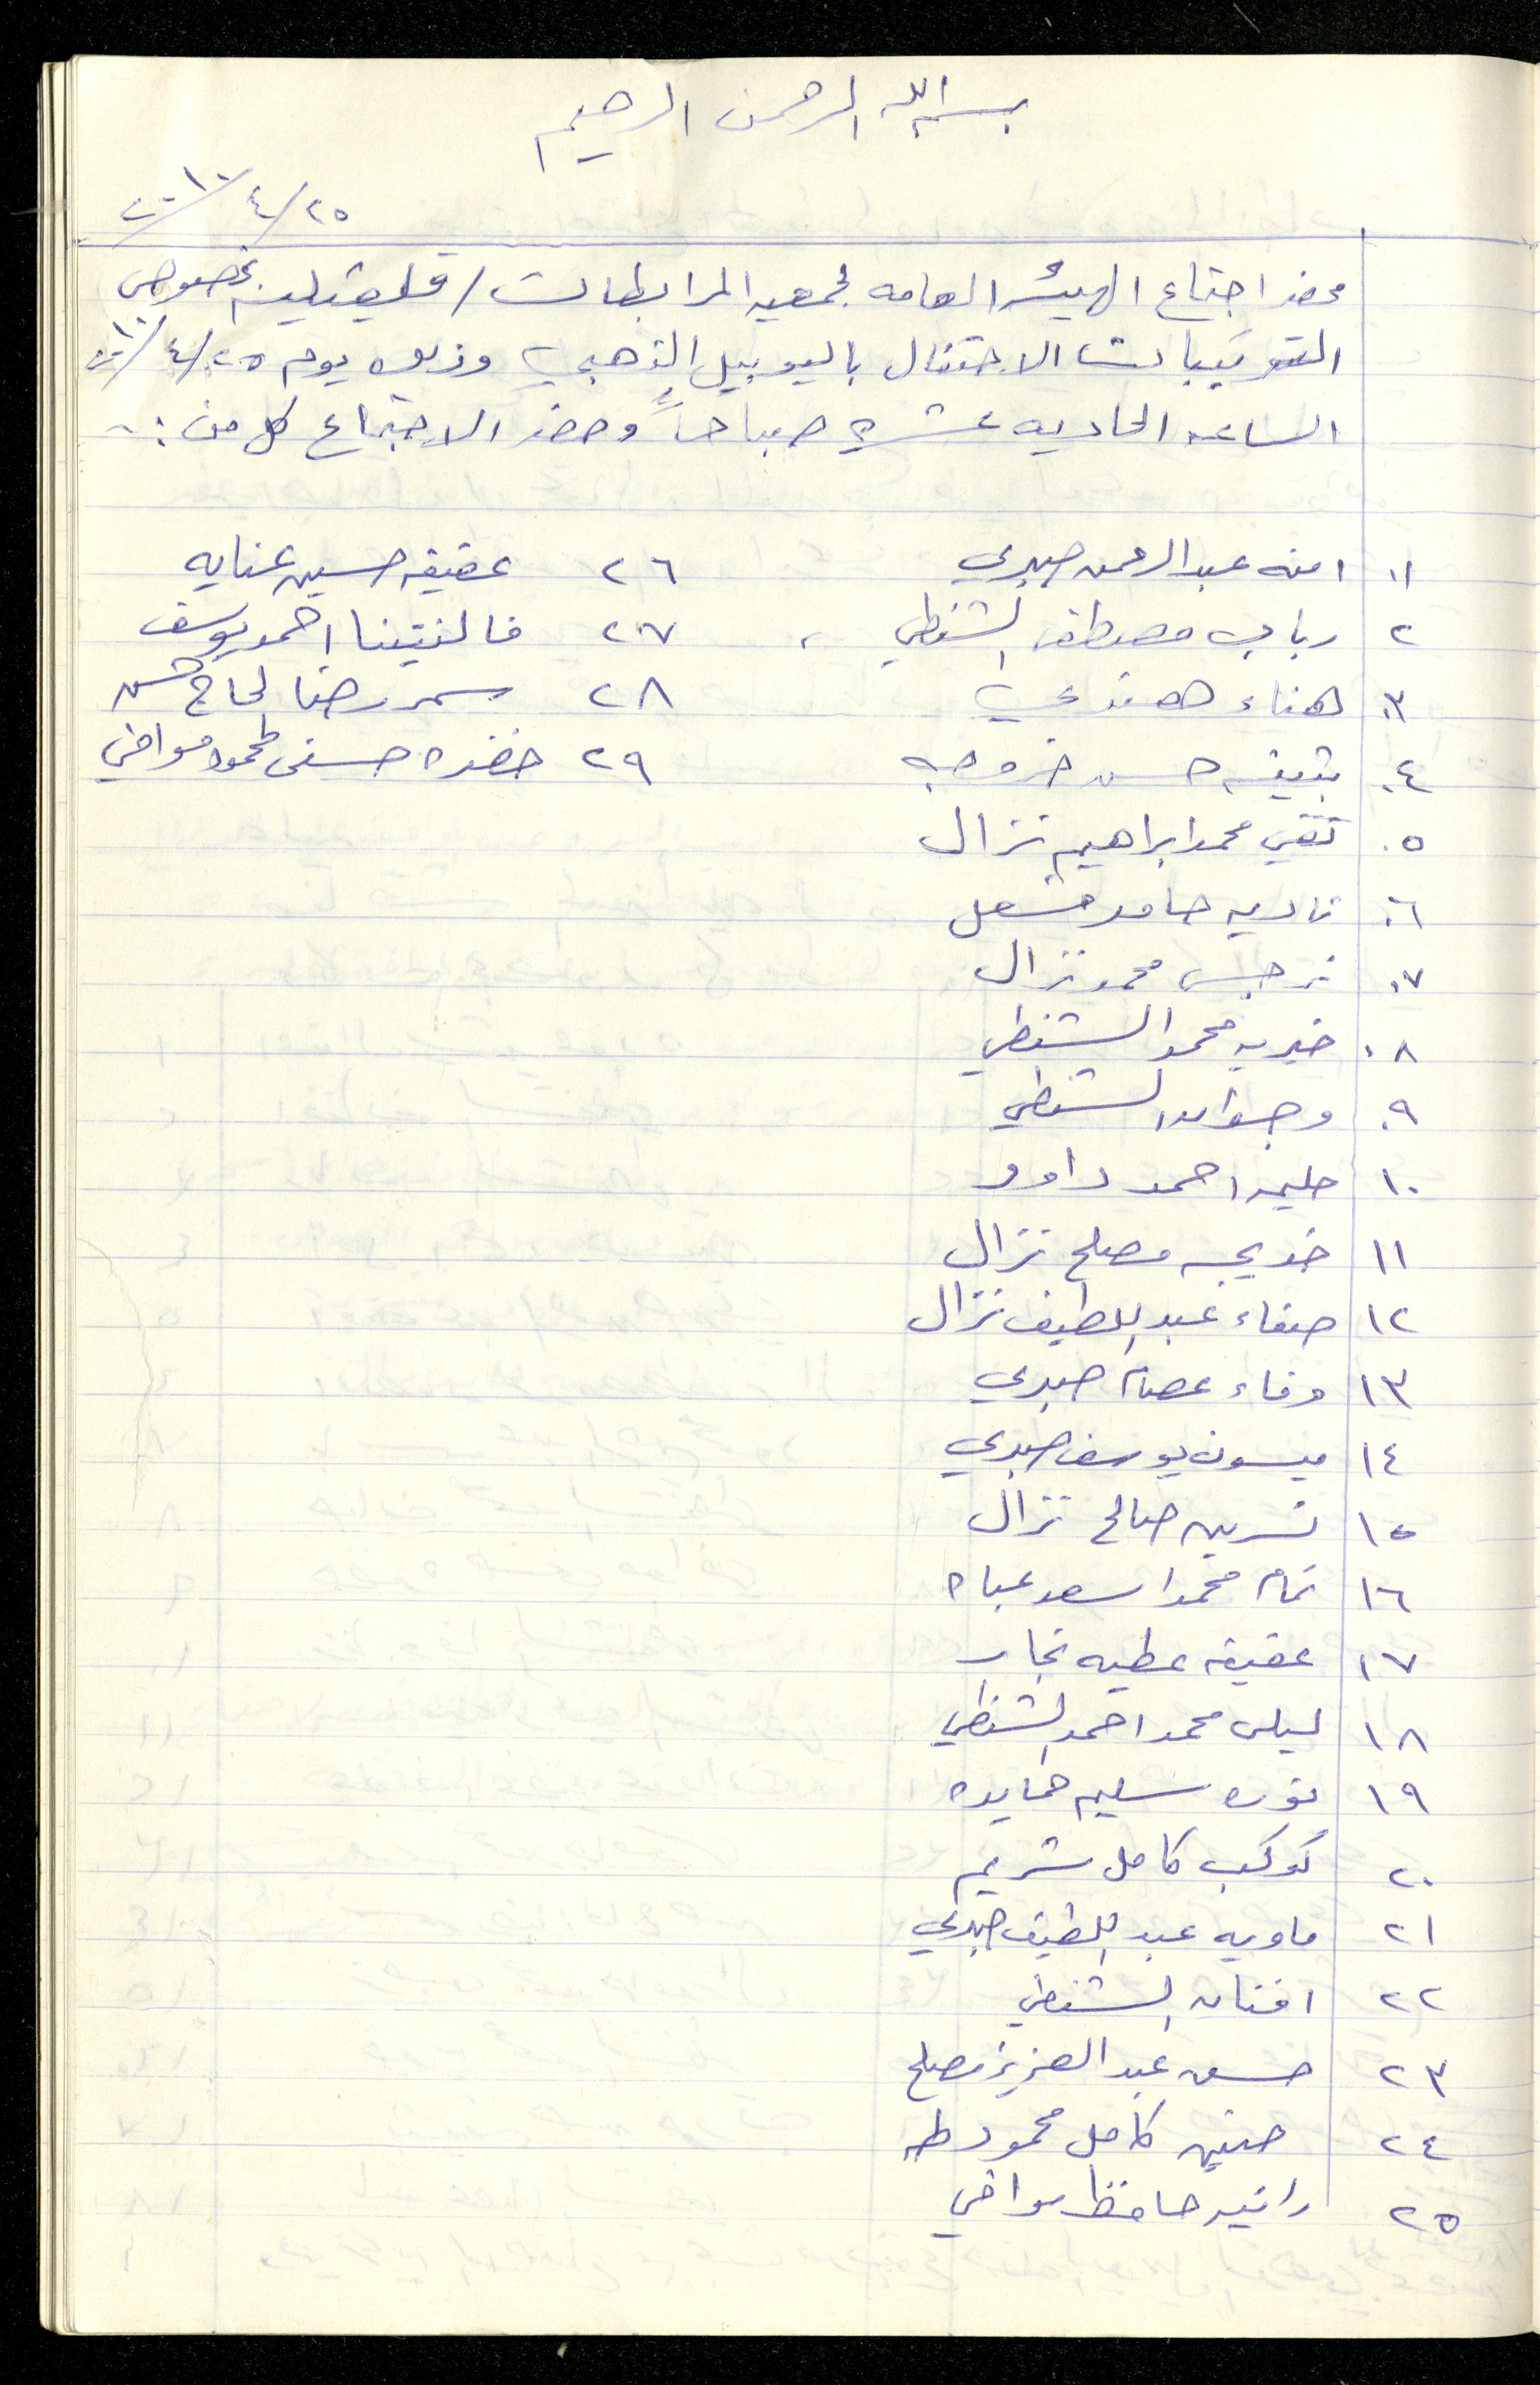 بسم الله الرحمن الرحيم
٢٥/٤/٢٠١٠
محضر اجتماع الهيئه العامه لجمعيه المرابطات / قلقيليه بخصوص
الترتيبات الاحتفال باليوبيل الذهبي وذلك يوم ٢٥/٤/٢٠١٠
الساعه الحاديه عشره صباحاً وحضر الاجتماع كل من :-
١. امنه عبد الرحمن صبري
٢ رباب مصطفى الشنطي
٣. هناء
٤. بثينه حسن خروبه
٥. تقي محمد ابراهيم نزال
٦. ناديه حامد مشعل
٧. نرجس محمد نزال
٨. خيريه محمد الشنطي
٩. وجدان الشنطي
١٠ حليمه احمد داود
١١ خديجه مصلح نزال
١٢ صفاء عبد اللطيف نزال
١٣ وفاء عصام صبري
١٤ ميسون يوسف صبري
١٥ نسرين صالح نزال
١٦ تمام محمد اسعد
١٧ عفيفه عطيه نجار
١٨ ليلى محمد احمد الشنطي
١٩ نوره سليم حمايده
٢٠ كوكب كامل شريم
٢١ ماويه عبد اللطيف صبري
٢٢ افنان الشنطي
٢٣ حسن عبد العزيز مصلح
٢٤ حنين كامل محمود طه
٢٥ رانيه حافظ موافي
٢٦ عفيفه حسين عنايه
٢٧ فالنتينا احمد يوسف
٢٨ سمر رضا الحاج حسن
٢٩ خضره حسني محمود موافي